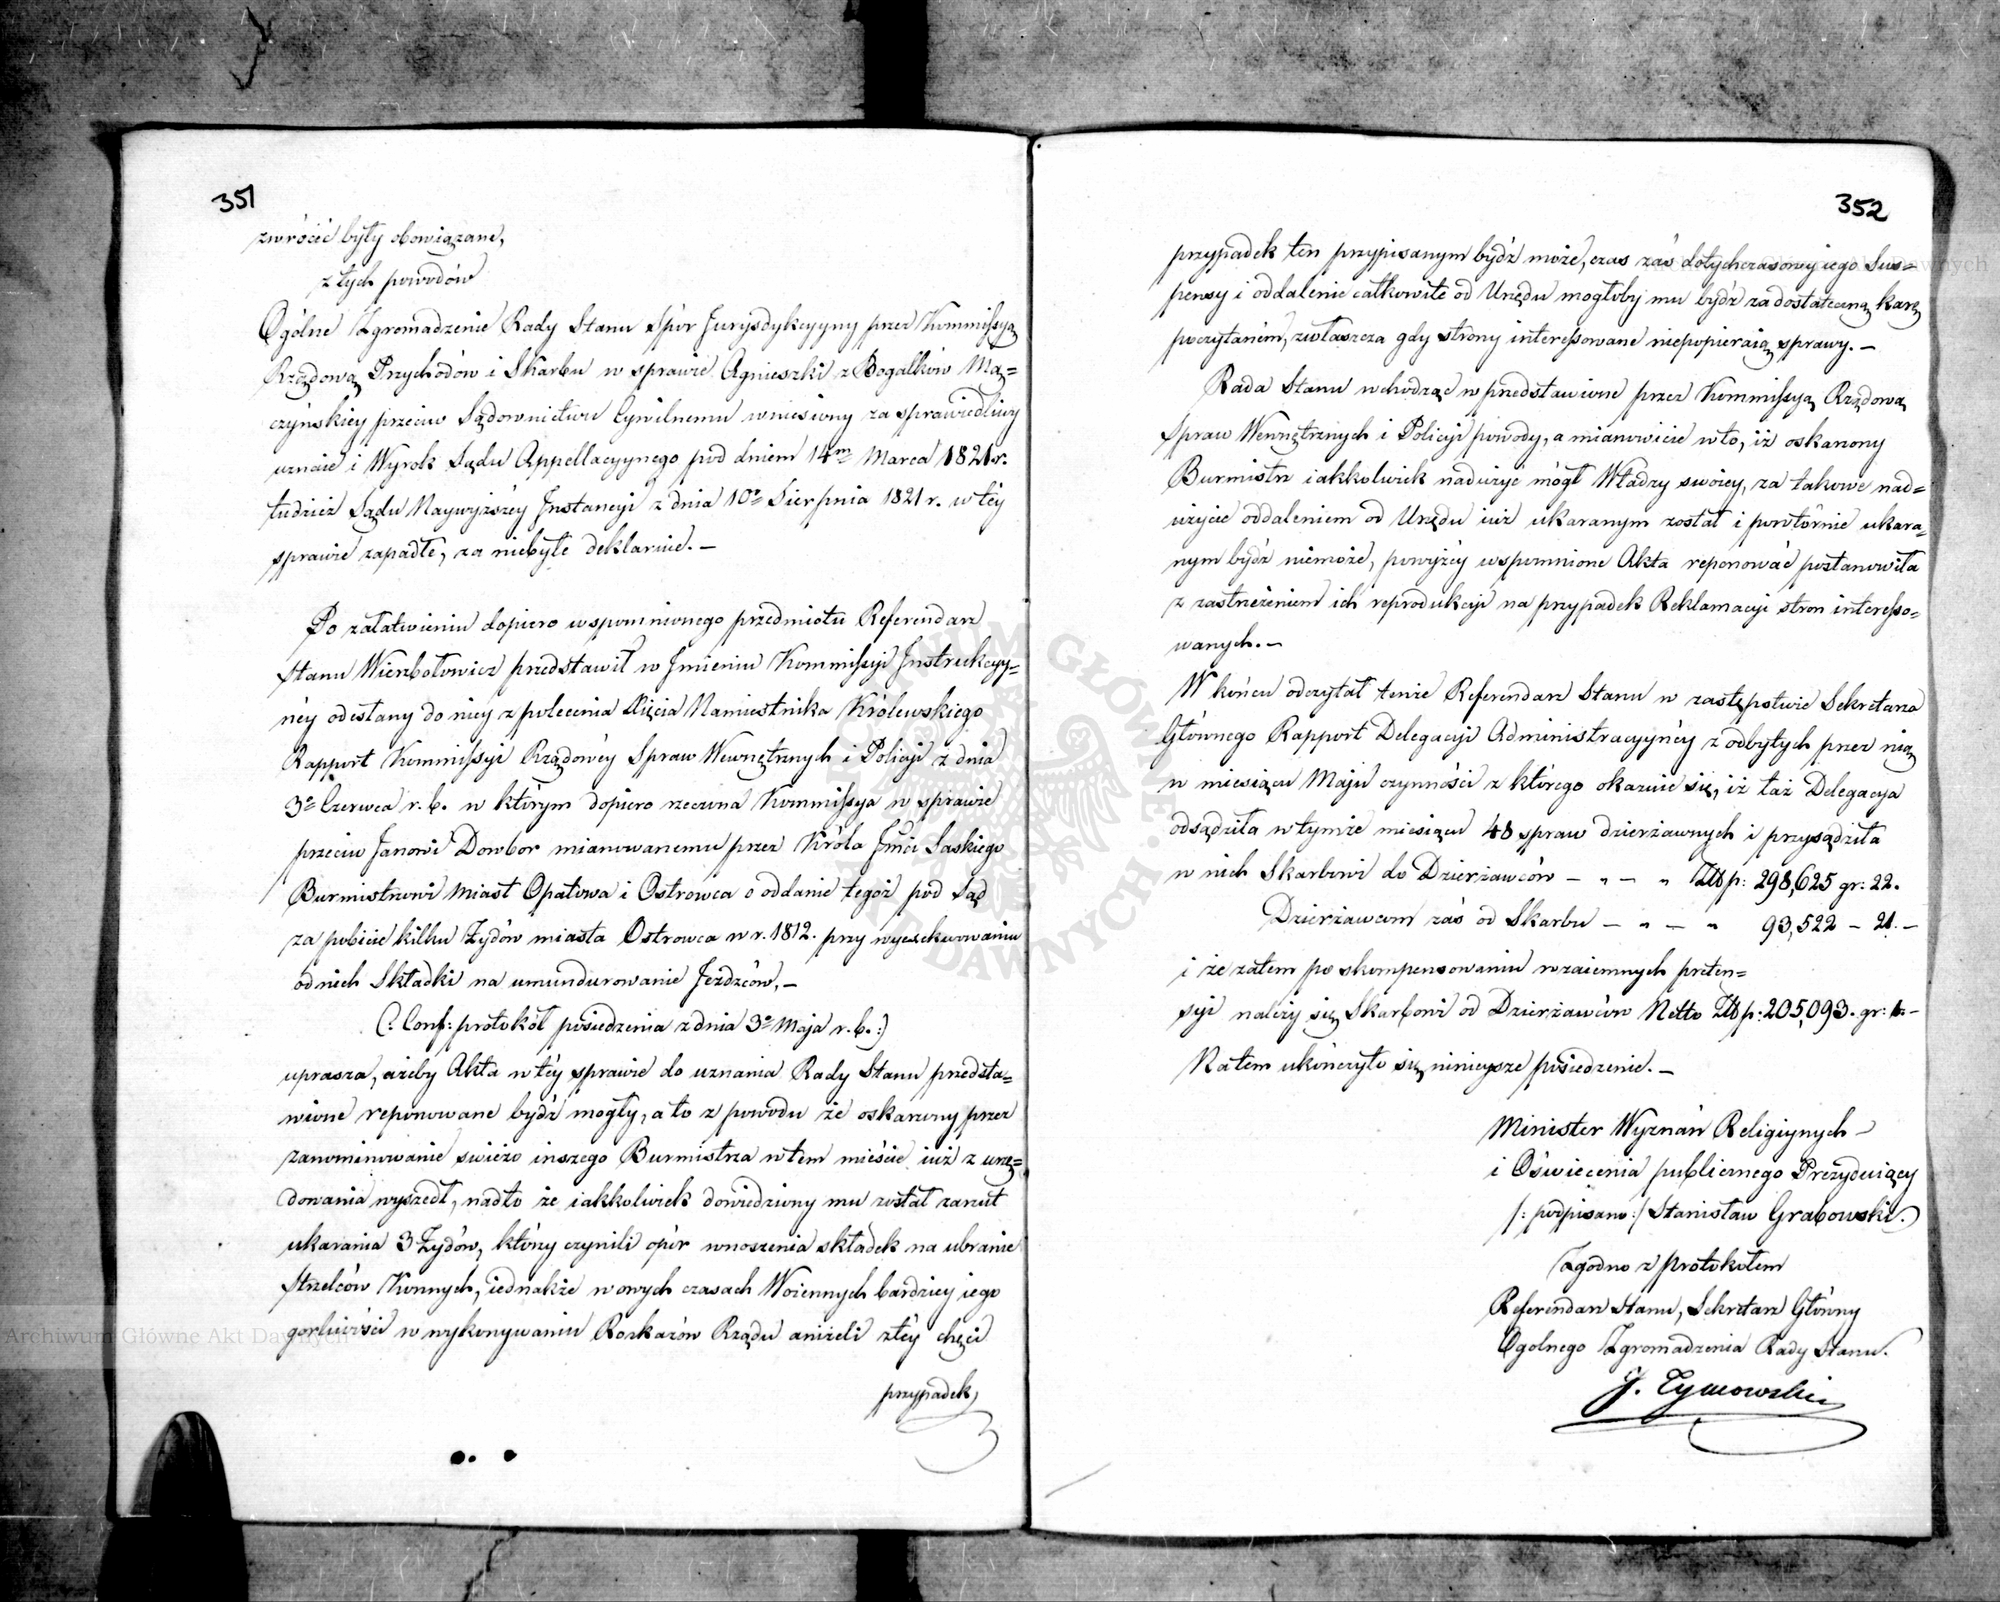 351
zwrócić były obowiązane,
z tych powodów
Ogólne Zgromadzenie Rady Stanu Spór Jurysdykcyyny przez Kommissyą
Rządową Przychodów i Skarbu w sprawie Agnieszki z Bogałków Mą=
czyńskiey przeciw Sądownictwu Cywilnemu wniesiony za sprawiedliwy
uznaie i Wyrok Sądu Appellacyynego pod dniem 14m Marca 1821 r.
tudzież Sądu Naywyższéy Instancyi z dnia 10o Sierpnia 1821 r. w téy
sprawie zapadłe, za niebyłe deklaruie. –
Po załatwieniu dopiero wspomnionego przedmiotu Referendarz
Stanu Wierzbołowicz przedstawił w Jmieniu Kommissyi Jnstrukcyy=
néy odesłany do niey z polecenia Xięcia Namiestnika Królewskiego
Rapport Kommissyi Rządowéy Spraw Wewnętrznych i Policyi z dnia
3o Czerwca r. b. w którym dopiero rzeczona Kommissya w sprawie
przeciw Janowi Dowbor mianowanemu przez Króla Jmci Saskiego
Burmistrzowi miast Opatowa i Ostrowca o oddanie tegoż pod Sąd
za pobicie kilku Żydów miasta Ostrowca w r. 1812. przy wyexekwowaniu
od nich Składki na umundurowanie Jeźdzców, –
(: Conf: protokół posiedzenia z dnia 3o Maja r. b. :)
uprasza, ażeby Akta w téy sprawie do uznania Rady Stanu przedsta=
wione reponowane bydź mogły, a to z powodu że oskarżony przez
zanominowanie świeżo inszego Burmistrza w tem mieście iuż z urzę=
dowania wyszedł, nadto że iakkolwiek dowiedziony mu został zarzut
ukarania 3 Żydów, którzy czynili opór wnoszenia składek na ubranie
Strzelców Konnych, iednakże w owych czasach Woiennych bardziey iego
gorliwości w wykonywaniu Rozkazów Rządu aniżeli złéy chęci
przypadek
352
przypadek ten przypisanym bydź może, czas zaś dotychczasowéy iego Sus=
pensy i oddalenie całkowite od Urzędu mogłoby mu bydź za dostateczną karę
poczytaném, zwłaszcza gdy strony interessowane niepopieraią sprawy. –
Rada Stanu wchodząc w przedstawione przez Kommissyą Rządową
Spraw Wewnętrznych i Policyi powody, a mianowicie w to, iż oskarżony
Burmistrz iakkolwiek nadużyć mógł Władzy swoiey, za takowe nad=
użycie oddaleniem od Urzędu iuż ukaranym został i powtórnie ukara=
nym bydź niemoże, powyżéy wspomnione Akta reponować postanowiła
z zastrzeżeniem ich reprodukcyi na przypadek Reklamacyi stron interesso=
wanych. –
W końcu odczytał tenże Referendarz Stanu w zastępstwie Sekretarza
Głównego Rapport Delegacyi Administracyynéy z odbytych przez nią
w miesiącu Maju czynności z którego okazuie się, iż taż Delegacya
odsądziła w tymże miesiącu 48 spraw dzierżawnych i przysądziła
w nich Skarbowi do Dzierżawców – „ – „ Złłp: 298,625 gr: 22.
Dzierżawcom zaś od Skarbu – „ – „ 93,522 – 21. –
i że zatem po skompensowaniu wzaiemnych preten=
syi należy się Skarbowi od Dzierżawców Netto Złłp: 205,093. gr: 1. –
Na tem ukończyło się ninieysze posiedzenie. –
Minister Wyznań Religiynych
i Oświecenia publicznego Prezyduiący
/: podpisano :/ Stanisław Grabowski.
Zgodno z protokołem
Referendarz Stanu, Sekretarz Główny
Ogolnego Zgromadzenia Rady Stanu.
J. Tymowski
Archiwum Główne Akt Dawnych